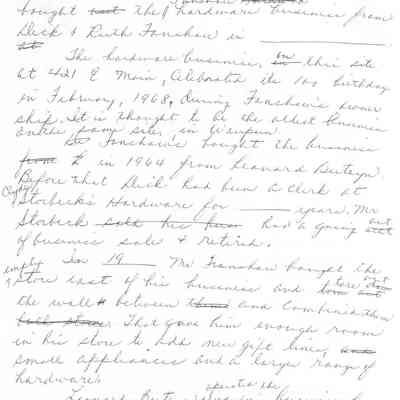 bought the hardware business from
Dick & Ruth Fanshaw in ______.
The hardware business, on this site
at 421 E Main, celebrated its 100 birthday
in February, 1968, during Fanshaw's owner
ship. It is thought to be the oldest business
on the same site, in Waupun.
Fanshaw's bought the business
in 1944 from Leonard
Before that Dick had been a clerk at
Storbeck's Hardware for ____ years. Mr
Storbeck had a going out
of business sale & retired.
In 19__ Mr Franshaw bought the
empty store east of his business and tore out
the wall between and combined them
That gave him enough room
in his store to add new gift lines,
small appliances and a larger range of
hardware.
operated the
Leonard